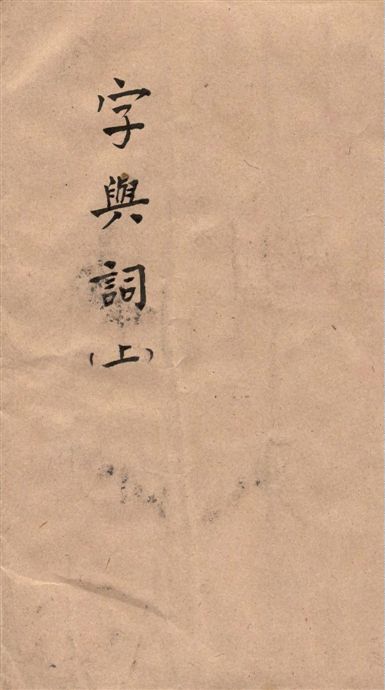 字與詞
(上)